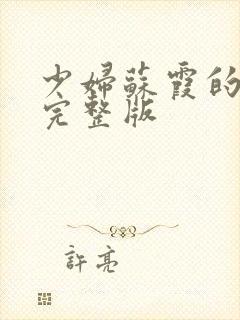 少婦蘇霞的
完整版
許亮